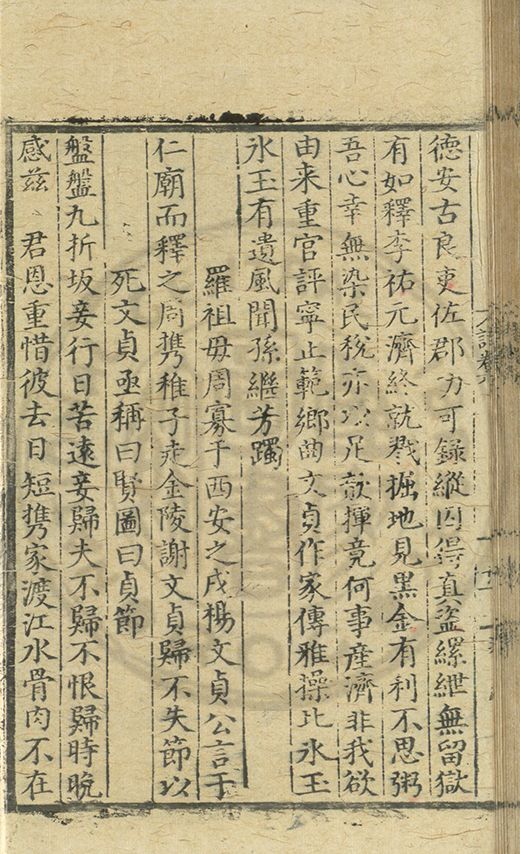 德安古良吏佐郡力可錄縱囚得真盜縲紲無留獄
有如釋李祐元濟終就戮掘地見黑金有利不思粥
吾心幸無染民稅亦以足歆揮竟何事産濟非我欲
由来重官評寧止範鄉曲文貞作家傳雅操比氷玉
氷玉有遺風聞孫繼芳躅
羅祖毋周寡于西安之戍楊文貞公言于
仁廟而釋之周携稚子走金陵謝文貞歸不失節以
死文貞亟稱曰賢圖曰貞節
盤盤九折坂妾行日苦遠妾歸夫不歸不恨歸時晩
感兹 君恩重惜彼去日短携家渡江水骨肉不在